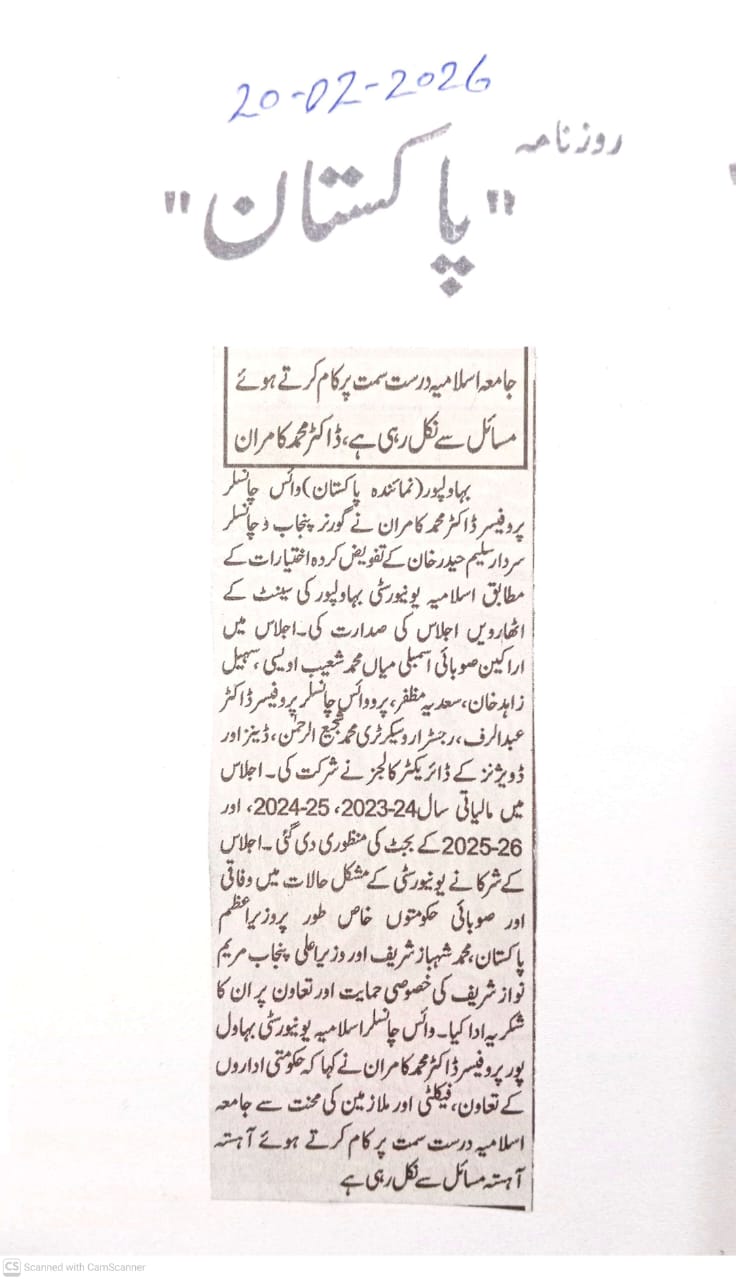 20-02-2026
روزنامہ
"پاکستان"
جامعہ اسلامیہ درست سمت پر کام کرتے ہوئے
مسائل سے نکل رہی ہے، ڈاکٹر محمد کامران
بہاولپور (نمائندہ پاکستان) وائس چانسلر
پروفیسر ڈاکٹر محمد کامران نے گورنر پنجاب و چانسلر
سردار سلیم حیدر خان کے تفویض کردہ اختیارات کے
مطابق اسلامیہ یونیورسٹی بہاولپور کی سینٹ کے
اٹھارویں اجلاس کی صدارت کی۔ اجلاس میں
اراکین صوبائی اسمبلی میاں محمد شعیب اویسی، سہیل
زاہد خان، سعدیہ مظفر، پرو وائس چانسلر پروفیسر ڈاکٹر
عبدالرف، رجسٹرار و سیکرٹری محمد شجیع الرحمٰن، ڈینز اور
ڈویژنز کے ڈائریکٹر کالجز نے شرکت کی۔ اجلاس
میں مالیاتی سال 2023-24، 2024-25، اور
2025-26 کے بجٹ کی منظوری دی گئی۔ اجلاس
کے شرکا نے یونیورسٹی کے مشکل حالات میں وفاقی
اور صوبائی حکومتوں خاص طور پر وزیراعظم
پاکستان، محمد شہباز شریف اور وزیراعلی پنجاب مریم
نواز شریف کی خصوصی حمایت اور تعاون پر ان کا
شکریہ ادا کیا۔ وائس چانسلر اسلامیہ یونیورسٹی بہاول
پور پروفیسر ڈاکٹر محمد کامران نے کہا کہ حکومتی اداروں
کے تعاون، فیکلٹی اور ملازمین کی محنت سے جامعہ
اسلامیہ درست سمت پر کام کرتے ہوئے آہستہ
آہستہ مسائل سے نکل رہی ہے
CS Scanned with CamScanner